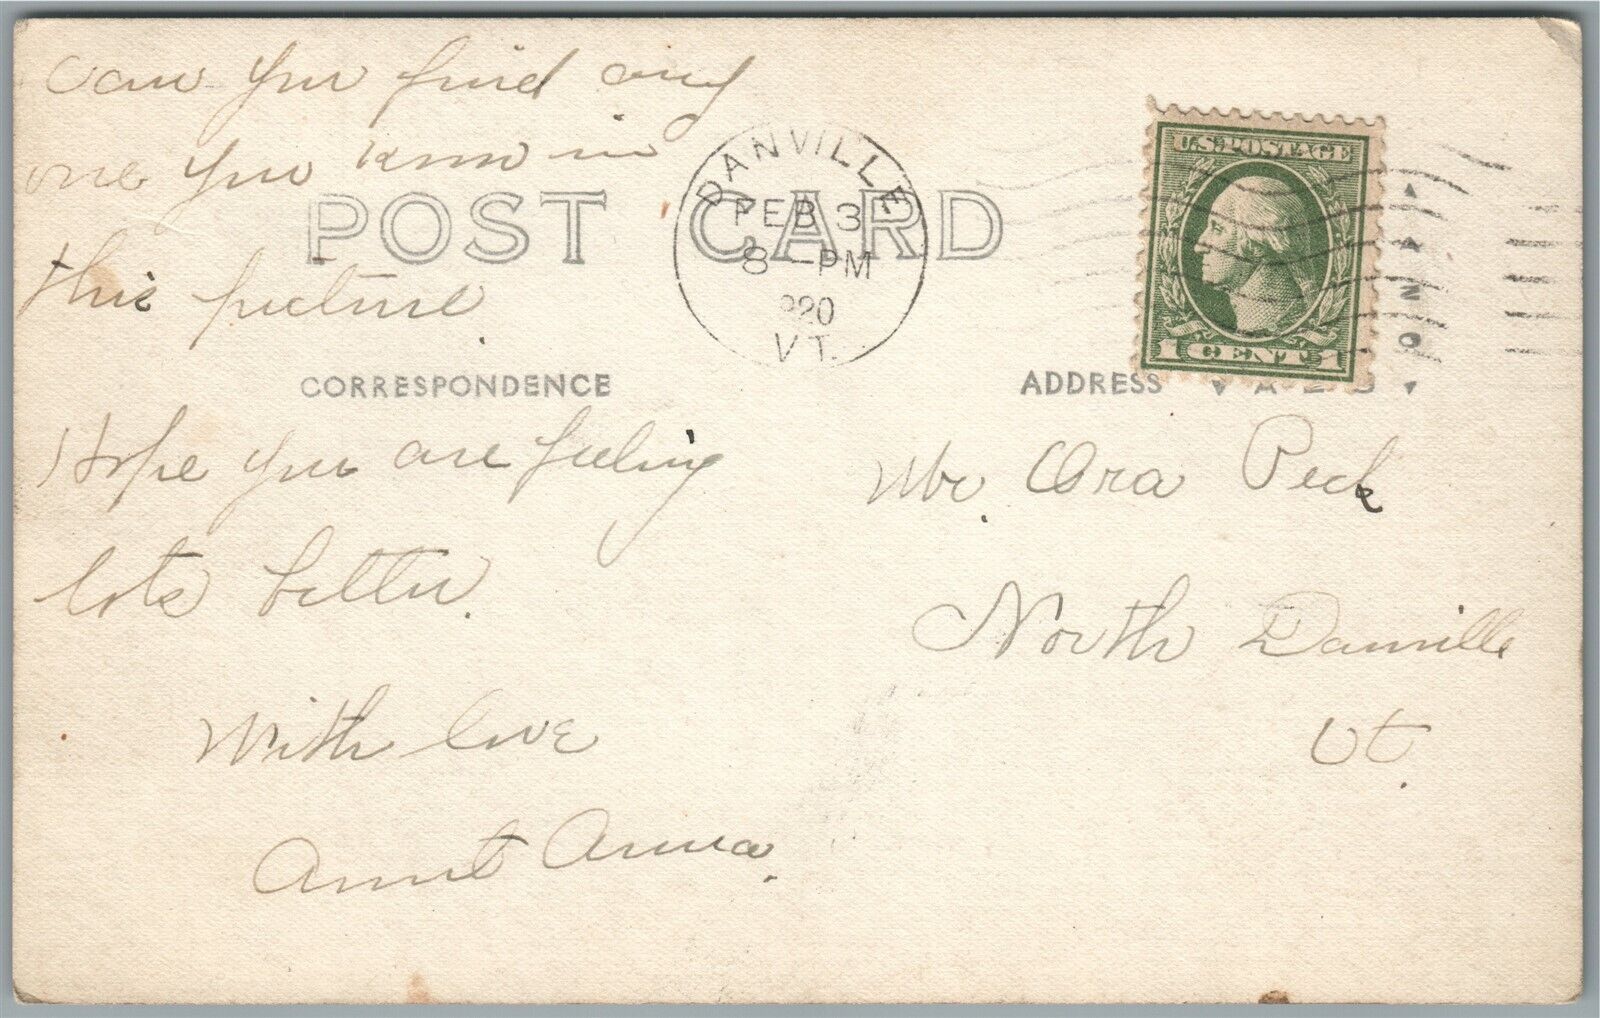 Can you find any
one you know in
this picture.
POST CARD
DANVILLE
FEB 3
8 - PM
920
VT.
U.S. POSTAGE
1 CENT 1
CORRESPONDENCE
ADDRESS
Hope you are feeling
lots better.
With love
Aunt Anna.
Mr. Ora Peck
North Danville
Vt.